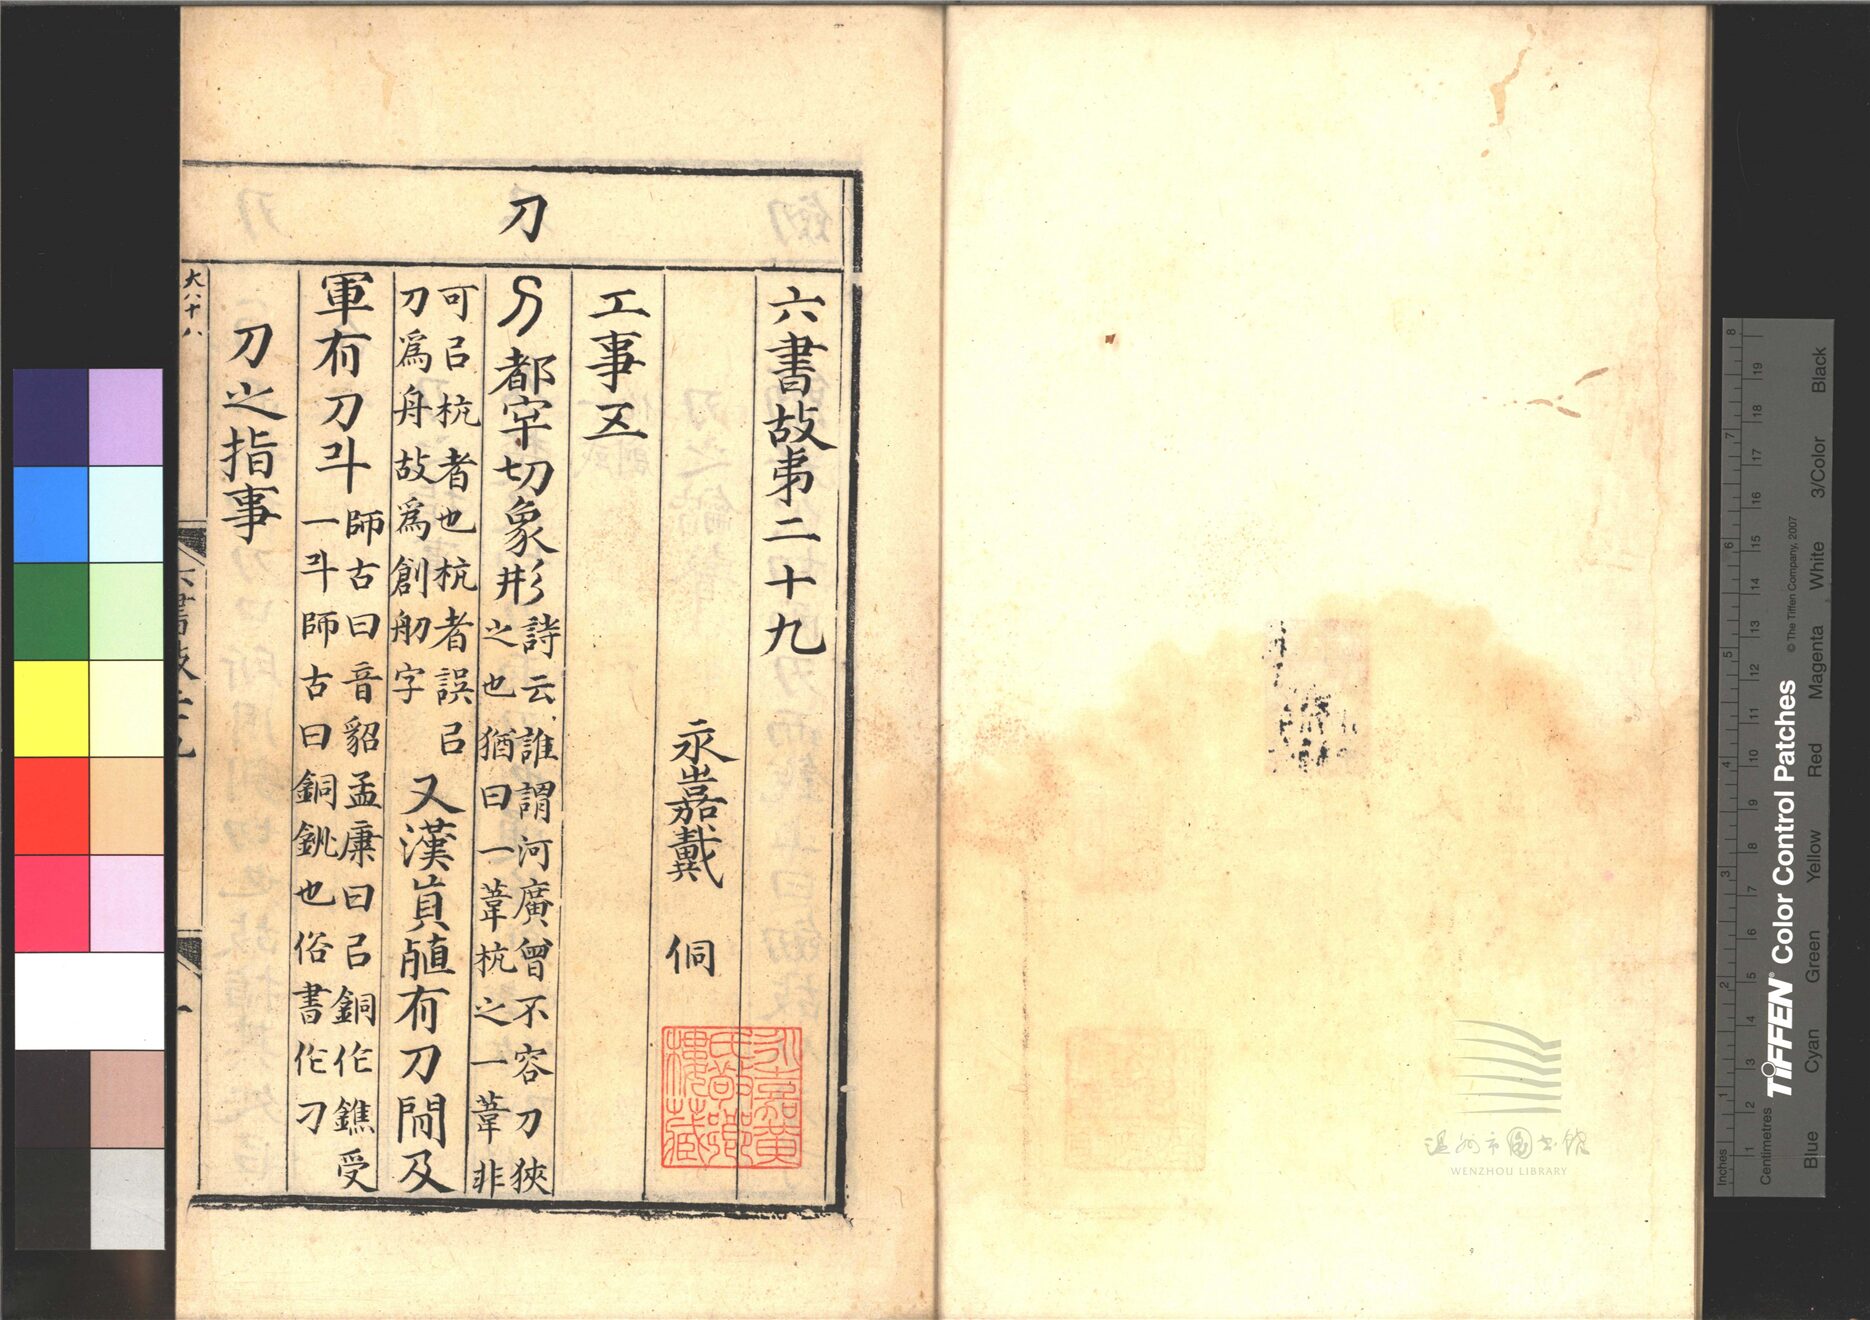 刀
六書故弟二十九
永嘉戴　侗
工事五
刀都牢切象形詩云誰謂河廣曾不容刀狹
之也猶曰一葦杭之一葦非
可㠯杭者也杭者誤㠯
刀爲舟故爲創舠字
又漢員㯰有刀閒及
軍有刀斗師古曰音貂孟康曰㠯銅作鐎受
一斗師古曰銅銚也俗書作刁
刀之指事
大八十八
六書故二十九
一
永嘉黃
樓藏
温州市图书馆
WENZHOU LIBRARY
Inches
Centimetres
1 2 3 4 5 6 7 8
1 2 3 4 5 6 7 8 9 10 11 12 13 14 15 16 17 18 19
TIFFEN® Color Control Patches
© The Tiffen Company, 2007
Blue Cyan Green Yellow Red Magenta White 3/Color Black